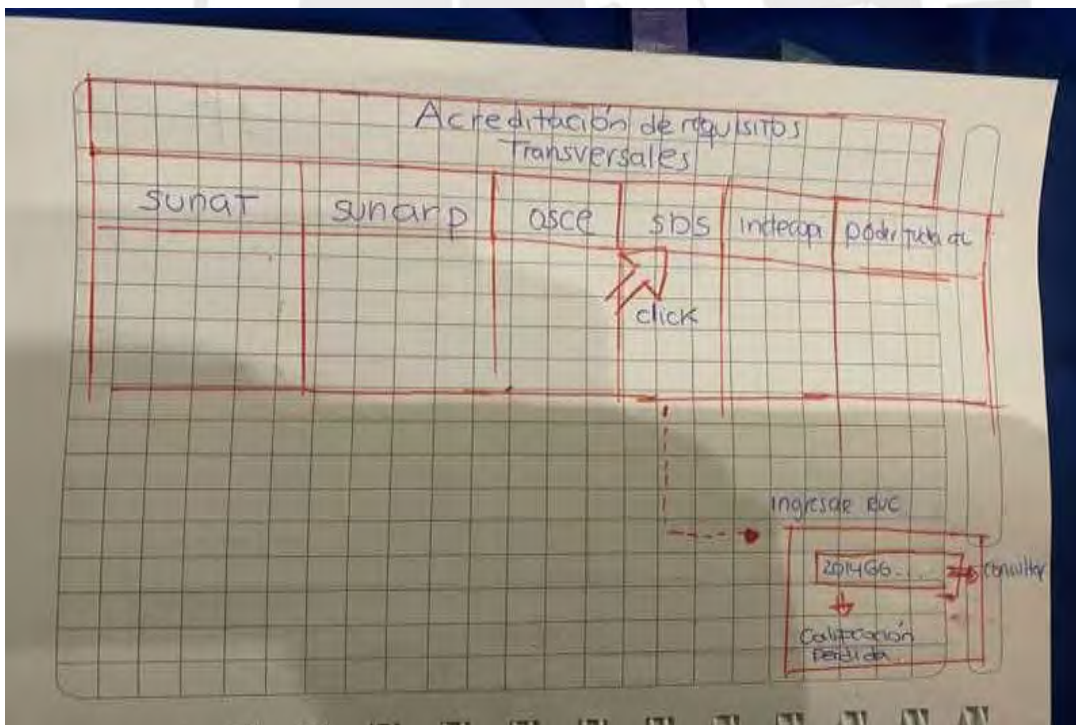 Acreditación de requisitos
Transversales
sunat sunarp osce sbs indecopi poder judicial
click
ingresar RUC
201466... consultar
Calificación
Perdida